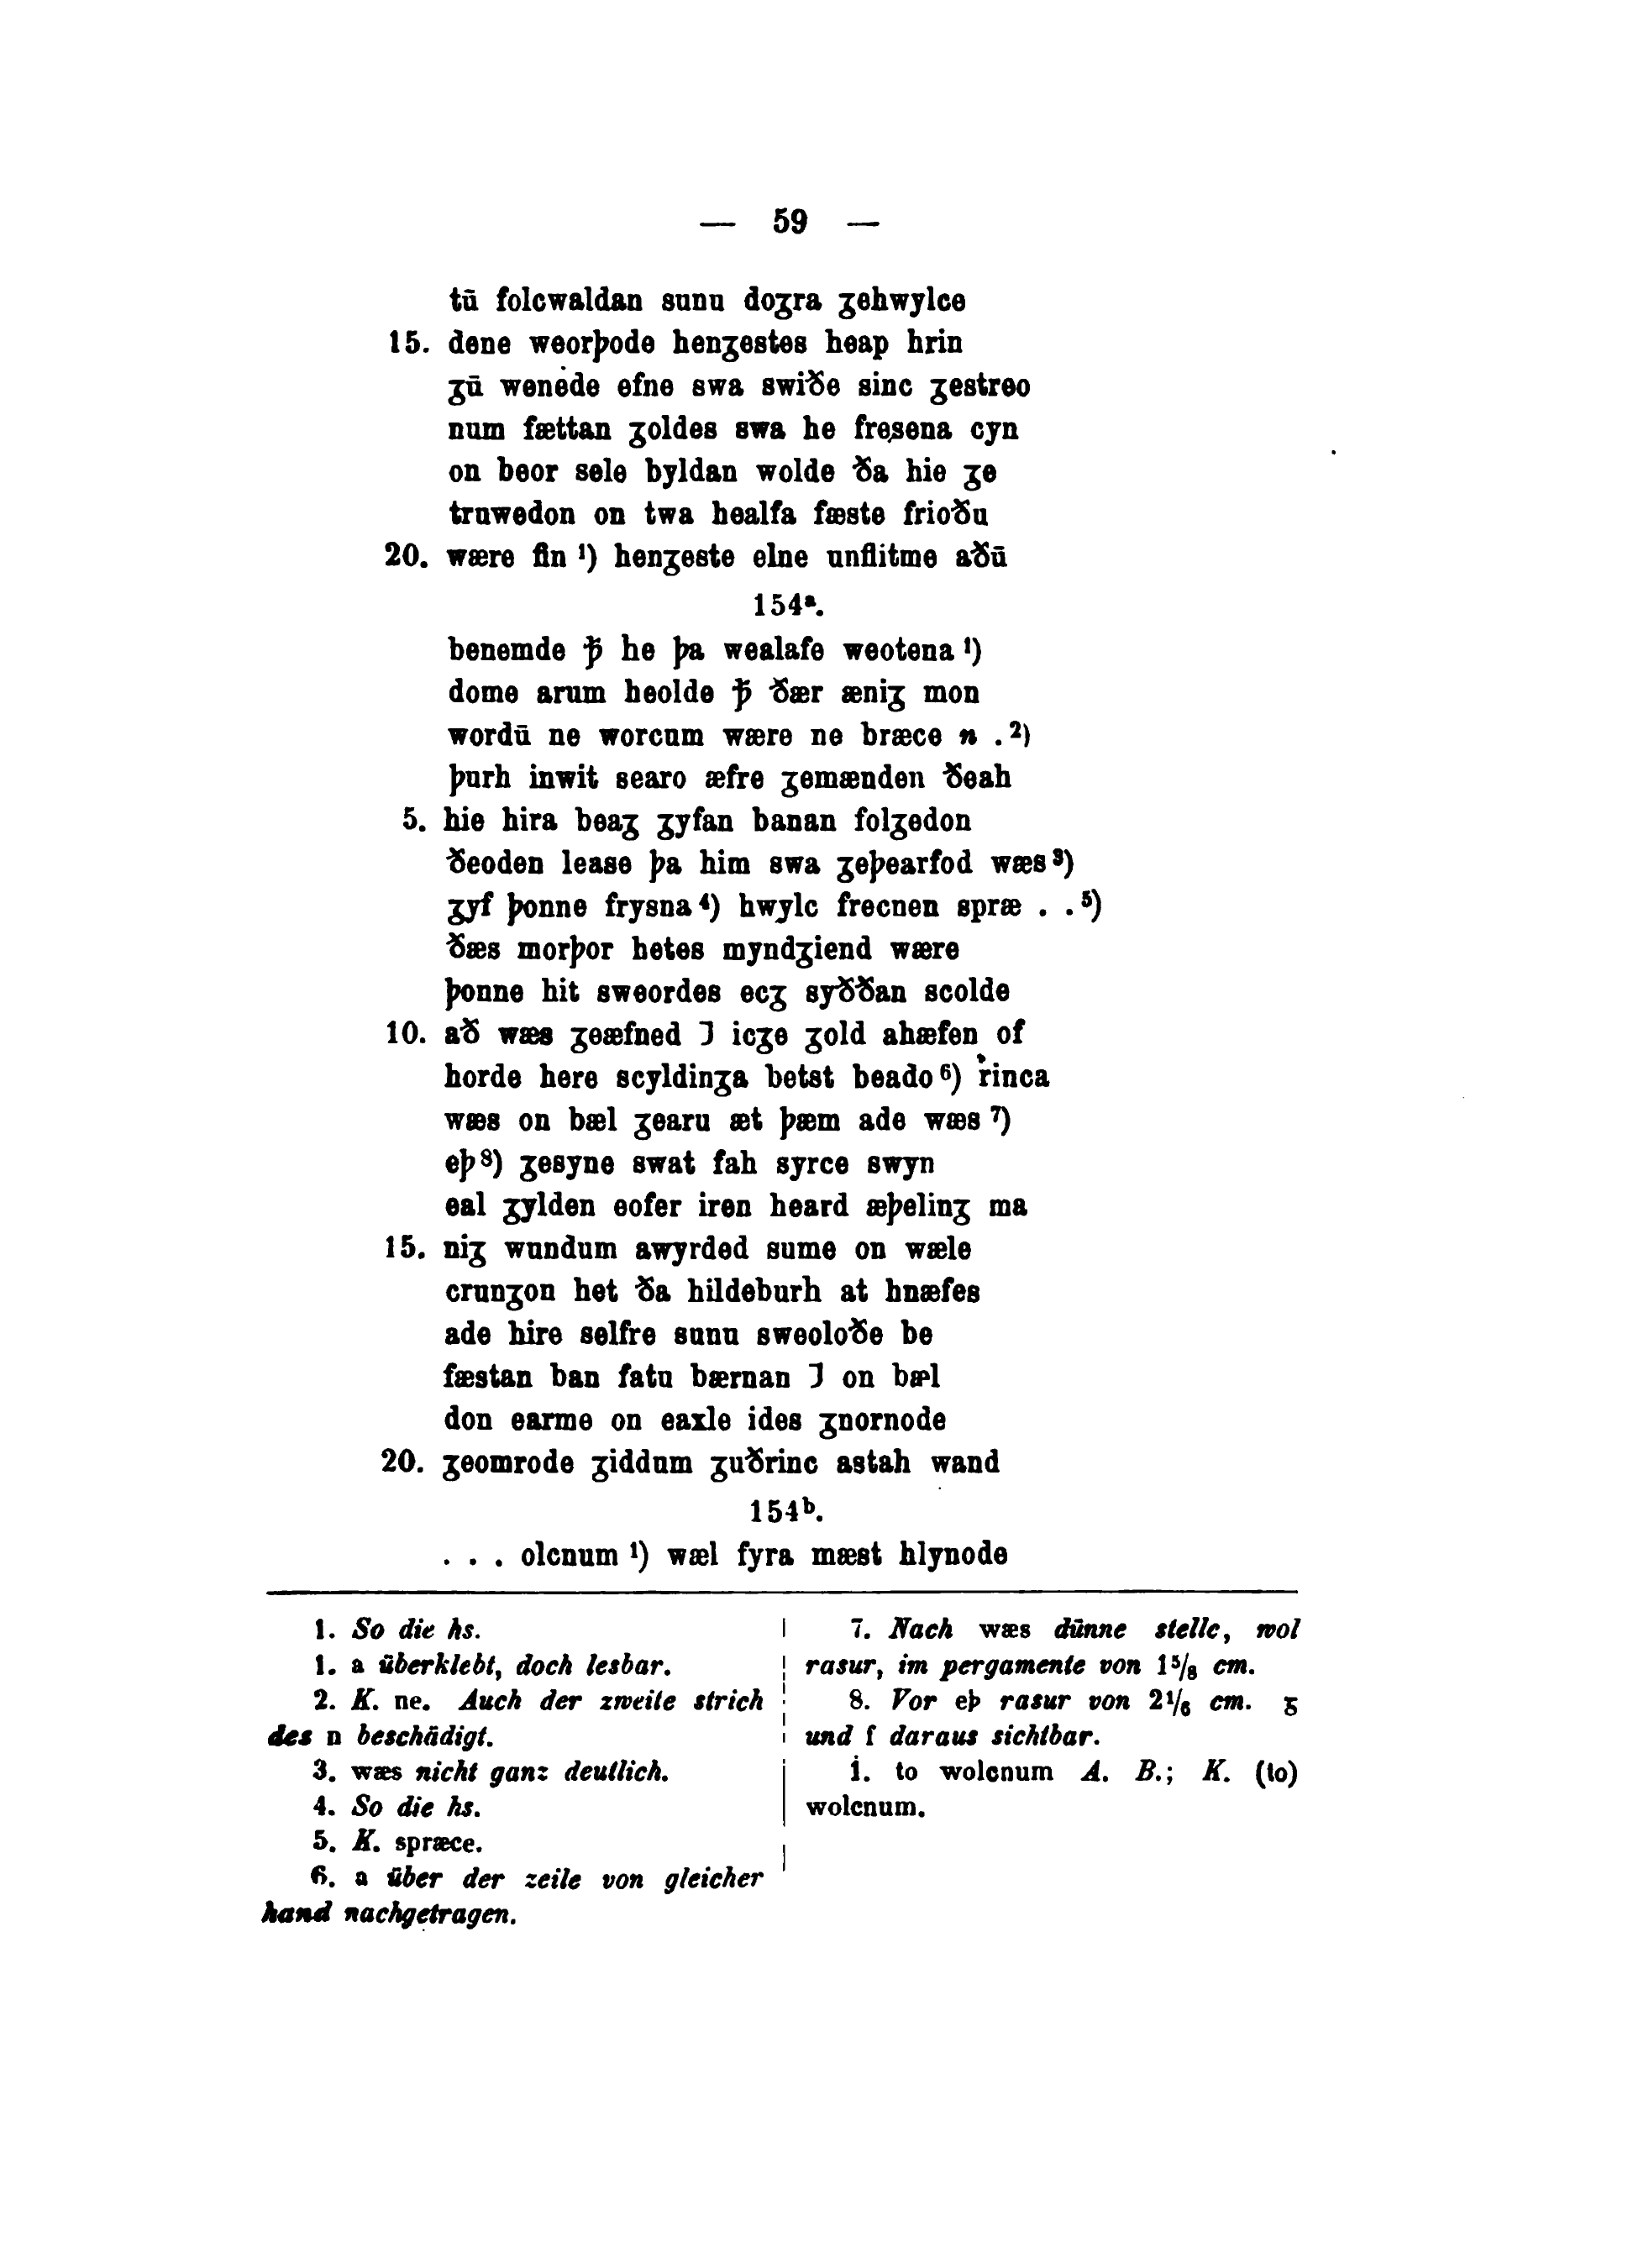 — 59 —
tū folcwaldan sunu doʒra ʒehwylce
15. dene weorþode henʒestes heap hrin
ʒū wenede efne swa swiðe sinc ʒestreo
num fættan ʒoldes swa he fresena cyn
on beor sele byldan wolde ða hie ʒe
truwedon on twa healfa fæste frioðu
20. wære fin ¹) henʒeste elne unflitme aðū
154ᵃ.
benemde ꝥ he þa wealafe weotena ¹)
dome arum heolde ꝥ ðær æniʒ mon
wordū ne worcum wære ne bræce n . ²)
þurh inwit searo æfre ʒemænden ðeah
5. hie hira beaʒ ʒyfan banan folʒedon
ðeoden lease þa him swa ʒeþearfod wæs ³)
ʒyf þonne frysna ⁴) hwylc frecnen spræ . . ⁵)
ðæs morþor hetes myndʒiend wære
þonne hit sweordes ecʒ syððan scolde
10. að wæs ʒeæfned ⁊ icʒe ʒold ahæfen of
horde here scyldinʒa betst beado ⁶) rinca
wæs on bæl ʒearu æt þæm ade wæs ⁷)
eþ ⁸) ʒesyne swat fah syrce swyn
eal ʒylden eofer iren heard æþelinʒ ma
15. niʒ wundum awyrded sume on wæle
crunʒon het ða hildeburh at hnæfes
ade hire selfre sunu sweoloðe be
fæstan ban fatu bærnan ⁊ on bæl
don earme on eaxle ides ʒnornode
20. ʒeomrode ʒiddum ʒuðrinc astah wand
154ᵇ.
. . . olcnum ¹) wæl fyra mæst hlynode
1. So die hs.
1. a überklebt, doch lesbar.
2. K. ne. Auch der zweite strich
des n beschädigt.
3. wæs nicht ganz deutlich.
4. So die hs.
5. K. spræce.
6. a über der zeile von gleicher
hand nachgetragen.
7. Nach wæs dünne stelle, wol
rasur, im pergamente von 1⁵/₈ cm.
8. Vor eþ rasur von 2¹/₆ cm. ᵹ
und f daraus sichtbar.
1. to wolcnum A. B.; K. (to)
wolcnum.